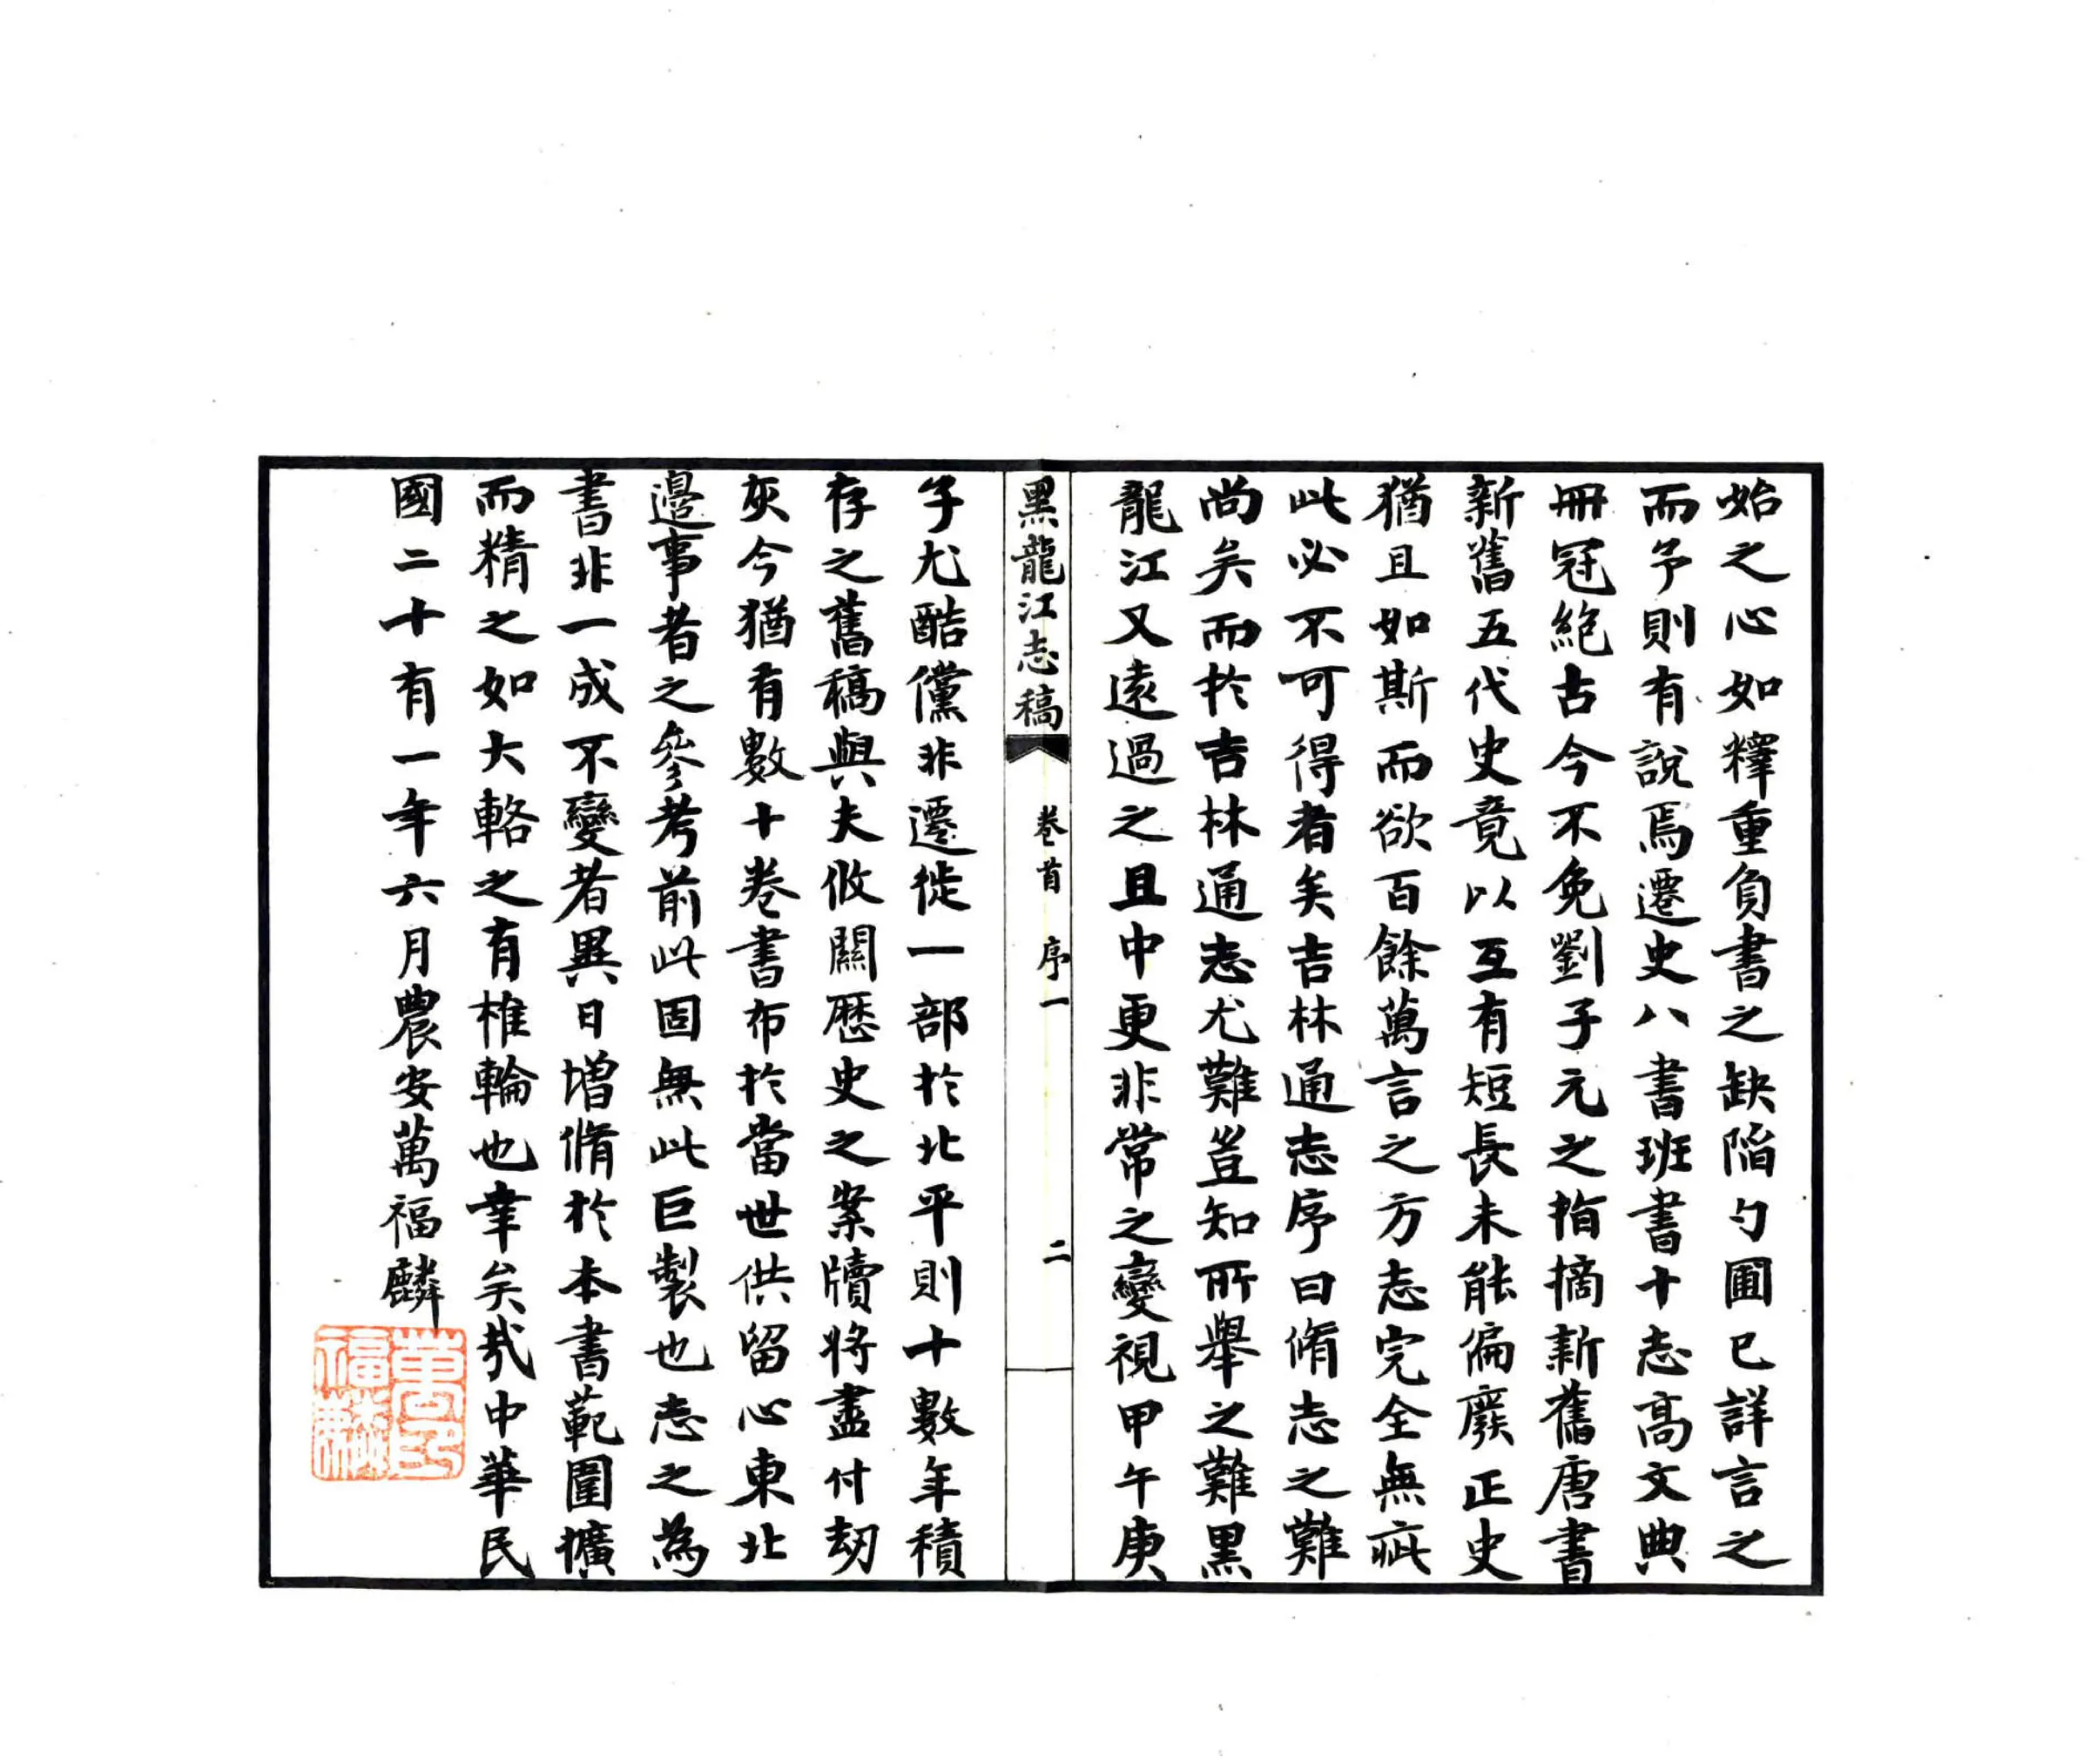 始之心如釋重負書之缺陷勺圃已詳言之
而予則有說焉遷史八書班書十志高文典
冊冠絕古今不免劉子元之指摘新舊唐書
新舊五代史竟以互有短長未能偏廢正史
猶且如斯而欲百餘萬言之方志完全無疵
此必不可得者矣吉林通志序曰脩志之難
尚矣而於吉林通志尤難豈知所舉之難黑
龍江又遠過之且中更非常之變視甲午庚
黑龍江志稿 卷首 序一 二
子尤酷儻非遷徙一部於北平則十數年積
存之舊稿與夫攸關歷史之案牘將盡付刼
灰今猶有數十卷書布於當世供留心東北
邊事者之參考前此固無此巨製也志之為
書非一成不變者異日增脩於本書範圍擴
而精之如大輅之有椎輪也幸矣哉中華民
國二十有一年六月農安萬福麟
萬福麟印